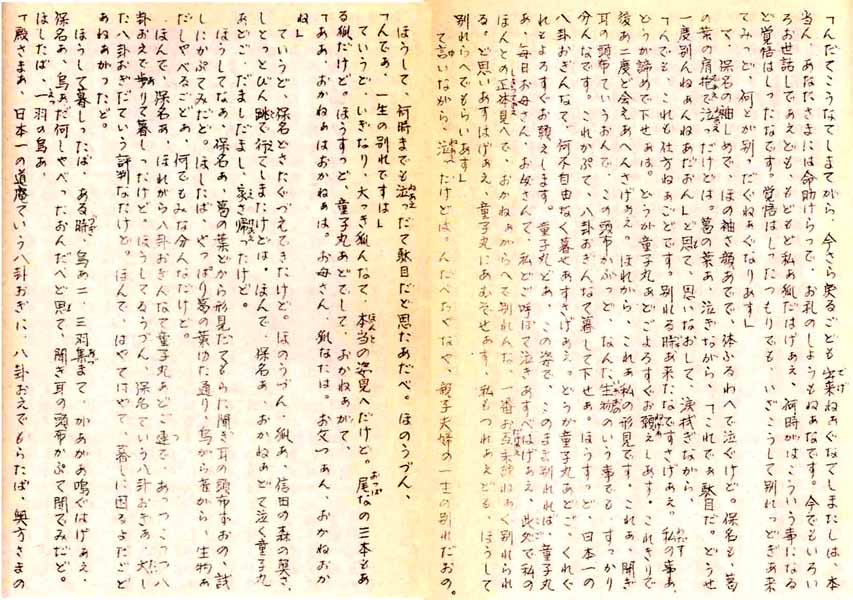 「んだてこうなてしまてがら、今さら戻るごども出来ねぁぐなてしまたしは、本
当ん、あなたさまには命助けらって、お礼のしようもねぁなです。今でもいろい
ろお世話してあえども、もどもど私ぁ狐だはげぁえ、何時がはこういう事になる
ど覚悟はしったなです。覚悟はしったつもりでも、いざこうして別れっどぎぁ来
てみっど、何とが別、だぐねぁぐなりあす」
て、保名の袖しめで、ほの袖さ顔あでで、体ふるわへで泣ぐけど。保名も、葛
の葉の肩抱で泣ったけどは。葛の葉ぁ、泣ぎながら、「これでぁ駄目だ。どうせ
一度別んねぁんねぁだおん」ど思て、思いなおして、涙拭ぎながら、
「んでも、これも仕方ねぁごどです。別れる時ぁ来たなですさげぁえ。私の事ぁ、
どうが諦めで下せぁは。どうが童子丸ぁどごよろすぐお頼えしあす。これきりで
後ぁ二度ど会えあへんさげぁえ。ほれがら、これぁ私の形見です。これぁ、聞ぎ
耳の頭布ていうおんで、この頭布かぶっど、なんた生物のいう事でも、すっかり
分んなです。これかぶて、八卦おぎんなて暮して下せぁ。ほうすっど、日本一の
八卦おぎんなて、何不自由なく暮せあすさげぁえ。どうが童子丸ぁどご、くれぐ
れもよろすぐお頼えします。童子丸どぁ、この姿で、このまま別れれば、童子丸
ぁ、毎日お母さん、お母さんて、私どご呼ばて泣きあすべはげぁえ、此処で私の
ほんとの正体見へで、おかねぁがらへで別れんな、一番お互未練ねぁぐ別れられ
る。ど思いあすはげぁえ、童子丸にあむでせぁす、私もつれぁえども、ほうして
別れらへでもらいあす」
て言いながら、泣ったけどは。んだべちやなや、親子夫婦の一生の別れだおの。
ほうして、何時までも泣ったて駄目だど思たあだべ。ほのうづん、
「んであ、一生の別れですは」
ていうど、いぎなり、大っき狐んなて、本当の姿見へだけど。尾なの三本もあ
る狐だけど。ほうすっど、童子丸あどでして、おかねぁがて、
「ああ、おかねぁはおかねぁは。お母さん、狐なたは。お父つぁん、おかねおか
ね」
ていうど、保名どさたぐづえてきたけど。ほのうづん、狐ぁ、信田の森の奥さ、
しとっとびん跳で行てしまたけどは。ほんで、保名ぁ、おかねぁどて泣ぐ童子丸
あどご、だましだまし、家さ帰ったけど。
ほうしてなぁ、保名ぁ、葛の葉どから形見だてもらた聞ぎ耳の頭布ずおの、試
しにかぶてみだど。ほしたば、やっぱり葛の葉ゆた通り、鳥から 虫がら、生物ぁ
だしゃべるごどぁ、何でもみな分んなだけど。
ほんで、保名ぁ、ほれがら八卦おぎんなて童子丸あどご連で、あっつこっつ八
卦おえで歩りて暮しったけど。ほうしてるうづん、保名ていう八卦おぎぁ、大し
た八卦おぎだていう評判なたけど。ほんで、はやてはやて、暮しに困るよだごど
あねぁがったど。
ほうして暮しったば、ある時、鳥ぁ二、三羽集まて、かあがあ鳴ぐはげぁえ、
保名ぁ、鳥ぁだ何しゃべったおんだべど思て、聞ぎ耳の頭布かぶて聞でみだど。
ほしたば、一羽の鳥ぁ、
「殿さまぁ、日本一の道庵ていう八卦おぎに、八卦おえでもらたば、奥方さまの